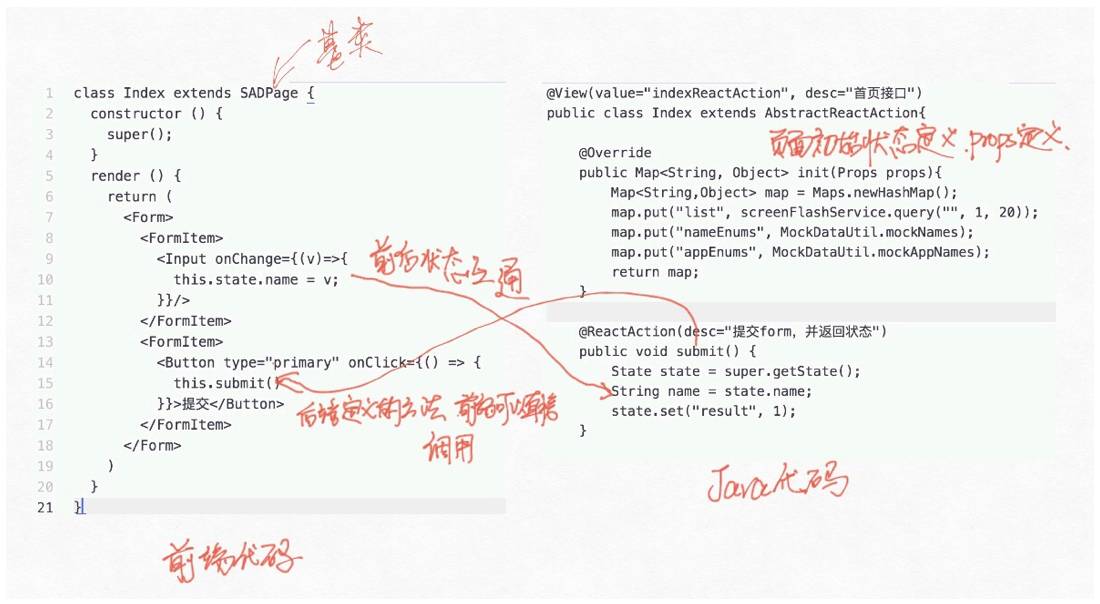 基类
1 class Index extends SADPage {
2 constructor () {
3 super();
4 }
5 render () {
6 return (
7 <Form>
8 <FormItem>
9 <Input onChange={(v)=>{
10 this.state.name = v;
11 }}/>
12 </FormItem>
13 <FormItem>
14 <Button type="primary" onClick={() => {
15 this.submit()
16 }}>提交</Button>
17 </FormItem>
18 </Form>
19 )
20 }
21 }
前后状态互通
后端定义的方法 前端可以直接
调用
前端代码
@View(value="indexReactAction", desc="首页接口")
public class Index extends AbstractReactAction{
页面初始状态定义.props定义、
@Override
public Map<String, Object> init(Props props){
Map<String,Object> map = Maps.newHashMap();
map.put("list", screenFlashService.query("", 1, 20));
map.put("nameEnums", MockDataUtil.mockNames);
map.put("appEnums", MockDataUtil.mockAppNames);
return map;
}
@ReactAction(desc="提交form，并返回状态")
public void submit() {
State state = super.getState();
String name = state.name;
state.set("result", 1);
}
Java代码